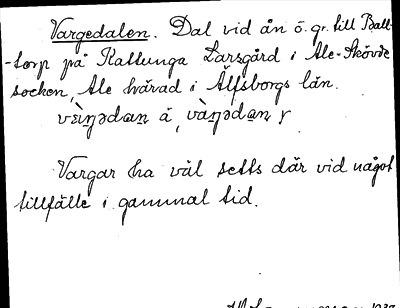 Vargedalen. Dal vid ån ö. gr. till Ball-
-torp på Kattunga Larsgård i Ale-Skövde
socken, Ale härad i Älfsborgs län.
Vargar ha väl setts där vid något
tillfälle i gammal tid.